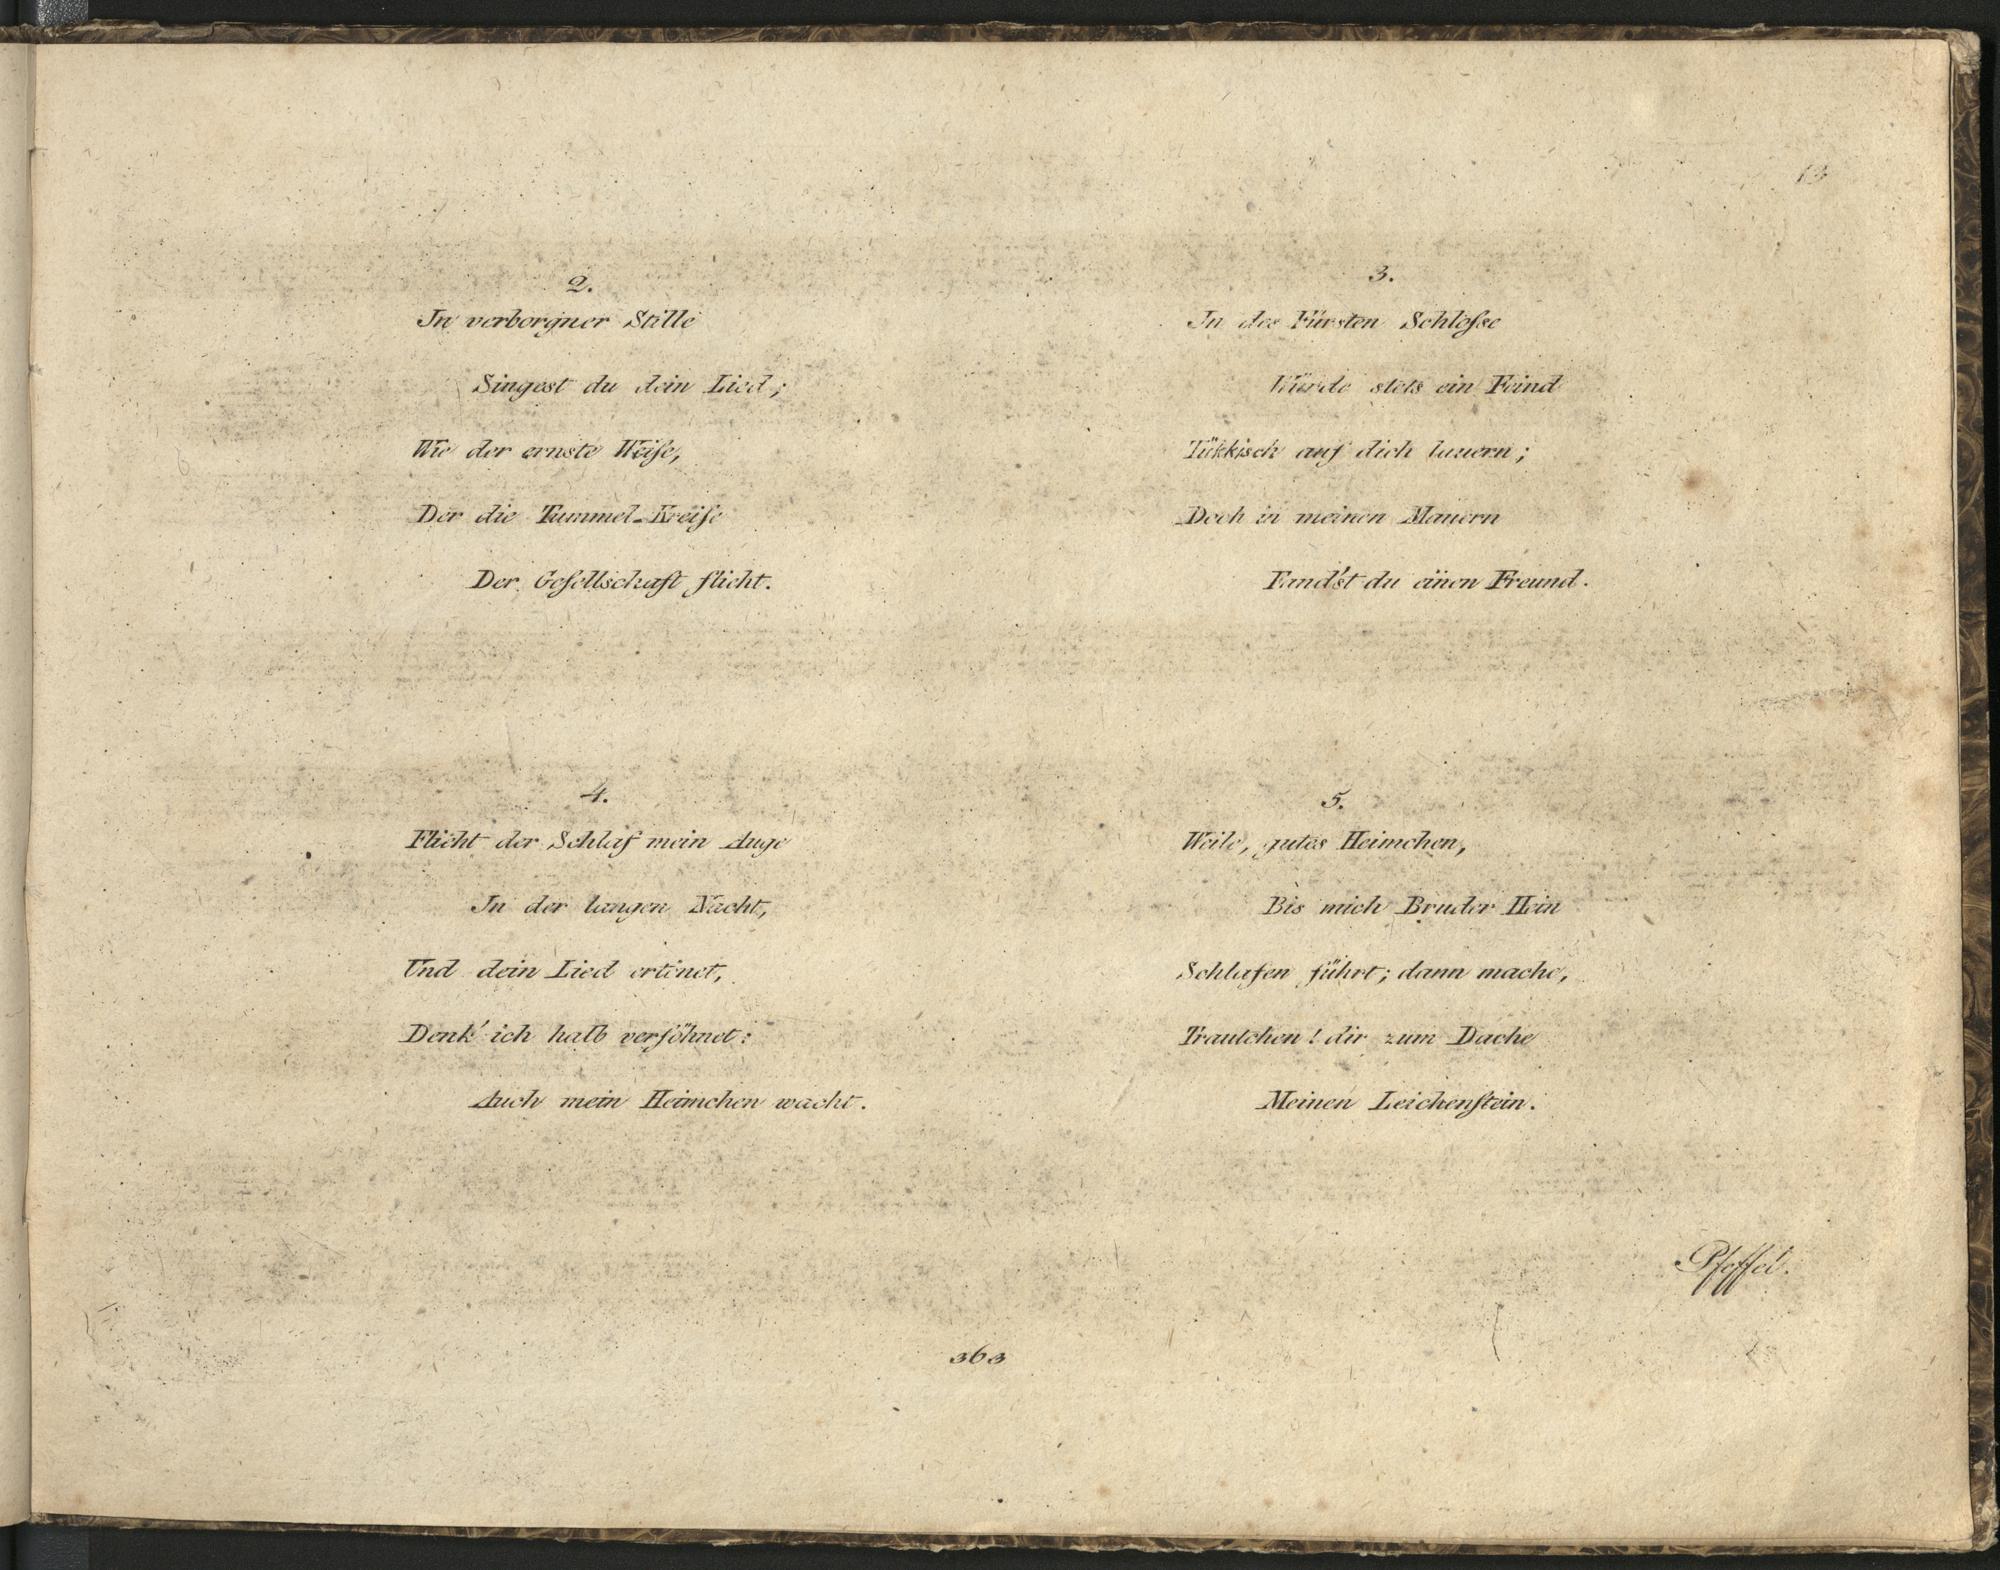 13
2.
In verborgner Stille
Singest du dein Lied;
Wie der ernste Weiſe,
Der die Tummel-Kreiſe
Der Geſellschaft flieht.
3.
In des Fürsten Schloſse
Würde stets ein Feind
Tükkisch auf dich lauern;
Doch in meinen Mauern
Fand'st du einen Freund.
4.
Flieht der Schlaf mein Auge
In der langen Nacht,
Und dein Lied ertönet,
Denk' ich halb verſöhnet:
Auch mein Heimchen wacht.
5.
Weile, gutes Heimchen,
Bis mich Bruder Hein
Schlafen führt; dann mache,
Trautchen! dir zum Dache
Meinen Leichenſtein.
Pfeffel.
363